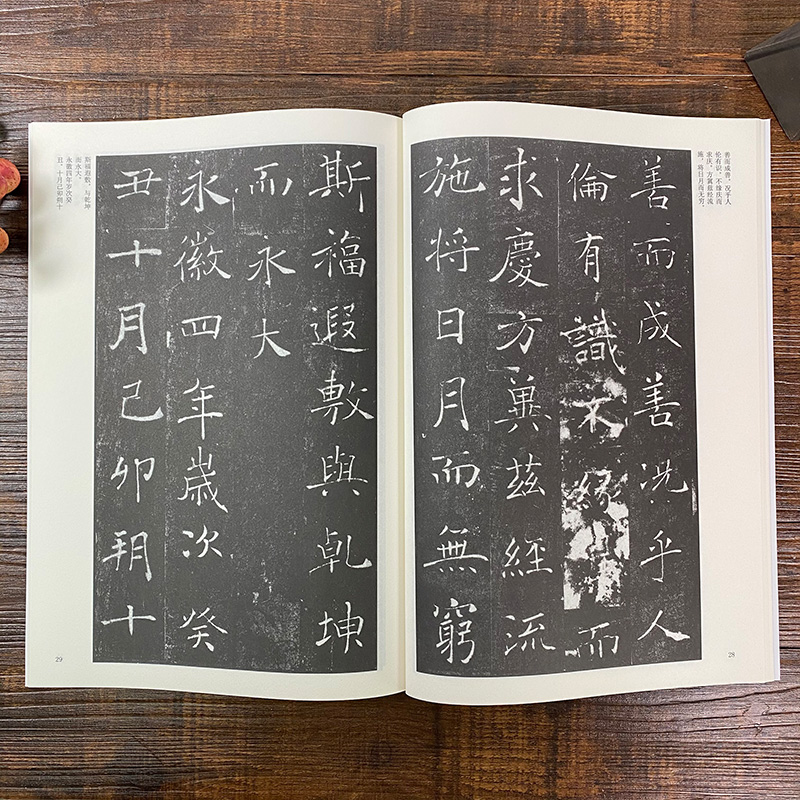 善而成善，况乎人
伦有识，不缘庆而
求庆，方冀兹经流
施，将日月而无穷，
善而成善況乎人
倫有識不緣慶而
求慶方冀茲經流
施將日月而無窮
28
斯福遐敷與乾坤
而永大
永徽四年歲次癸
丑十月己卯朔十
斯福遐敷，与乾坤
而永大。
永徽四年岁次癸
丑，十月己卯朔十
29